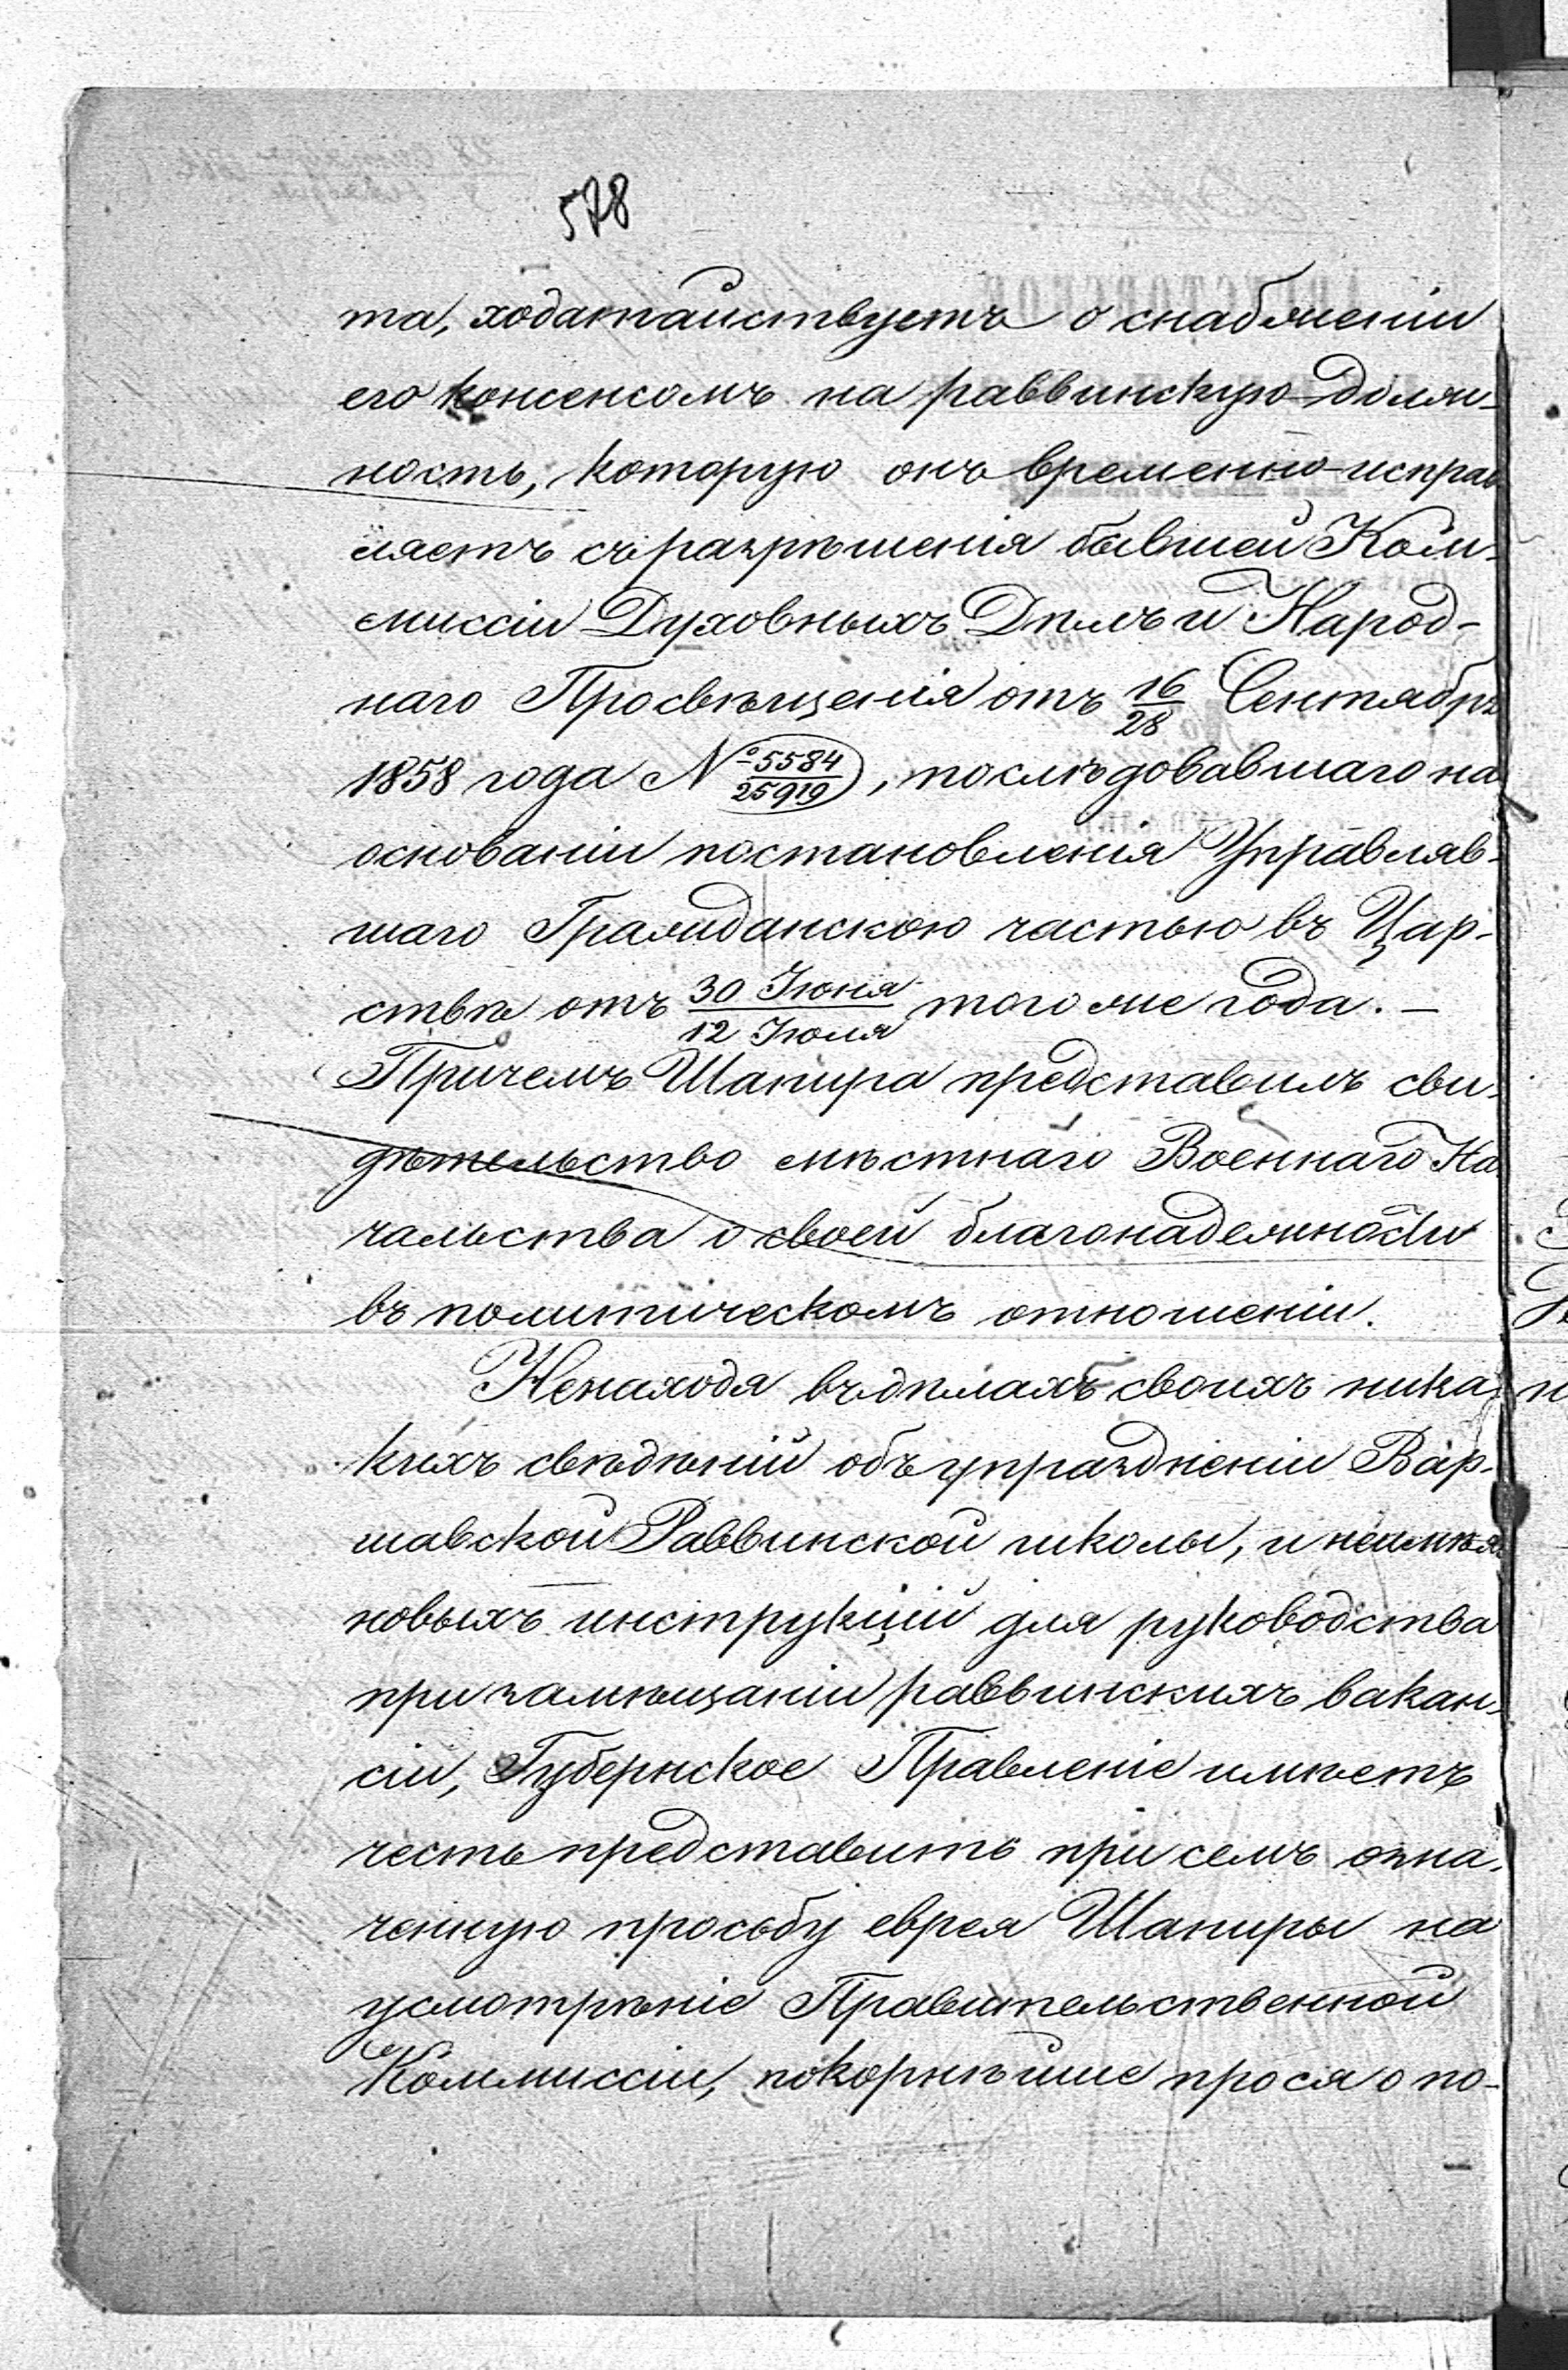 578
та, ходатайствуетъ о снабженіи
его консенсомъ на раввинскую долж-
ность, которую онъ временно исправ
ляетъ съ разрѣшенія бывшей Ком-
миссіи Духовныхъ Дѣлъ и Народ-
наго Просвѣщенія отъ 16/28 Сентября
1858 года № 5584/25919, послѣдовавшаго на
основаніи постановленія Управляв-
шаго Гражданскою частью въ Цар-
ствѣ отъ 30 Іюня/12 Іюля того же года. —
Причемъ Шапира представилъ сви-
дѣтельство мѣстнаго Военнаго На
чальства о своей благонадежности
въ политическомъ отношеніи.
Ненаходя въ дѣлахъ своихъ ника-
кихъ свѣдѣній объ упраздненіи Вар-
шавской Раввинской школы, и неимѣя
новыхъ инструкцій для руководства
при замѣщаніи раввинскихъ вакан-
сіи, Губернское Правленіе имѣетъ
честь представить при семъ озна-
ченную просьбу еврея Шапиры на
усмотрѣніе Правительственной
Коммиссіи, покорнѣйше прося о по-